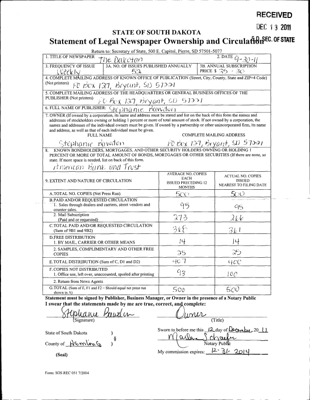 RECEIVED
DEC 13 2011
STATE OF SOUTH DAKOTA
Statement of Legal Newspaper Ownership and Circulation
S.D. SEC. OF STATE
Return to: Secretary of State, 500 E. Capitol, Pierre, SD 57501-5077
1. TITLE OF NEWSPAPER The Dakotan
2. DATE 9-30-11
3. FREQUENCY OF ISSUE Weekly
3A. NO. OF ISSUES PUBLISHED ANNUALLY 52
3B. ANNUAL SUBSCRIPTION PRICE $ 25 - 30
4. COMPLETE MAILING ADDRESS OF KNOWN OFFICE OF PUBLICATION (Street, City, County, State and ZIP+4 Code)
(Not printers) PO Box 137, Bryant, SD 57221
5. COMPLETE MAILING ADDRESS OF THE HEADQUARTERS OF GENERAL BUSINESS OFFICES OF THE
PUBLISHER (Not printers) PO Box 137, Bryant, SD 57221
6. FULL NAME OF PUBLISHER: Stephanie Bawden
7. OWNER (If owned by a corporation, its name and address must be stated and also the names and
addresses of stockholders owning or holding 1 percent or more of total amount of stock. If not owned by a corporation, the
names and addresses of the individual owners must be given. If owned by a partnership or other unincorporated firm, its name
and address, as well as that of each individual must be given.
FULL NAME
COMPLETE MAILING ADDRESS
Stephanie Bawden
PO Box 137, Bryant, SD 57221
8. KNOWN BONDHOLDERS, MORTGAGEES, AND OTHER SECURITY HOLDERS OWNING OR HOLDING 1
PERCENT OR MORE OF TOTAL AMOUNT OF BONDS, MORTGAGES OR OTHER SECURITIES (If there are none, so
state. If more space is needed, list on back of this form.
American Bank and Trust
9. EXTENT AND NATURE OF CIRCULATION
AVERAGE NO. COPIES EACH ISSUED PRECEEDING 12 MONTHS
ACTUAL NO. COPIES ISSUED NEAREST TO FILING DATE
A. TOTAL NO. COPIES (Net Press Run) 500 500
B. PAID AND/OR REQUESTED CIRCULATION
1. Sales through dealers and carriers, street vendors and counter sales. 95 95
2. Mail Subscription
(Paid and or requested) 273
C. TOTAL PAID AND/OR REQUESTED CIRCULATION
(Sum of 9B1 and 9B2) 368 361
D. FREE DISTRIBUTION
1. BY MAIL, CARRIER OR OTHER MEANS 14 14
2. SAMPLES, COMPLIMENTARY AND OTHER FREE COPIES 25 25
E. TOTAL DISTRIBUTION (Sum of C, D1 and D2) 407 400
F. COPIES NOT DISTRIBUTED
1. Office use, left over, unaccounted, spoiled after printing 93 100
2. Return from News Agents
G. TOTAL (Sum of E, F1 and F2 - Should equal net press run shown in A) 500 500
Statement must be signed by Publisher, Business Manager, or Owner in the presence of a Notary Public
I swear that the statements made by me are true, correct, and complete:
Stephanie Bawden Owner
(Signature) (Title)
State of South Dakota )
County of Hamlin )
(Seal)
Sworn to before me this 12 day of December, 20 11
Notary Public
My commission expires: 12-31-2014
Form: SOS REC 051 7/2004